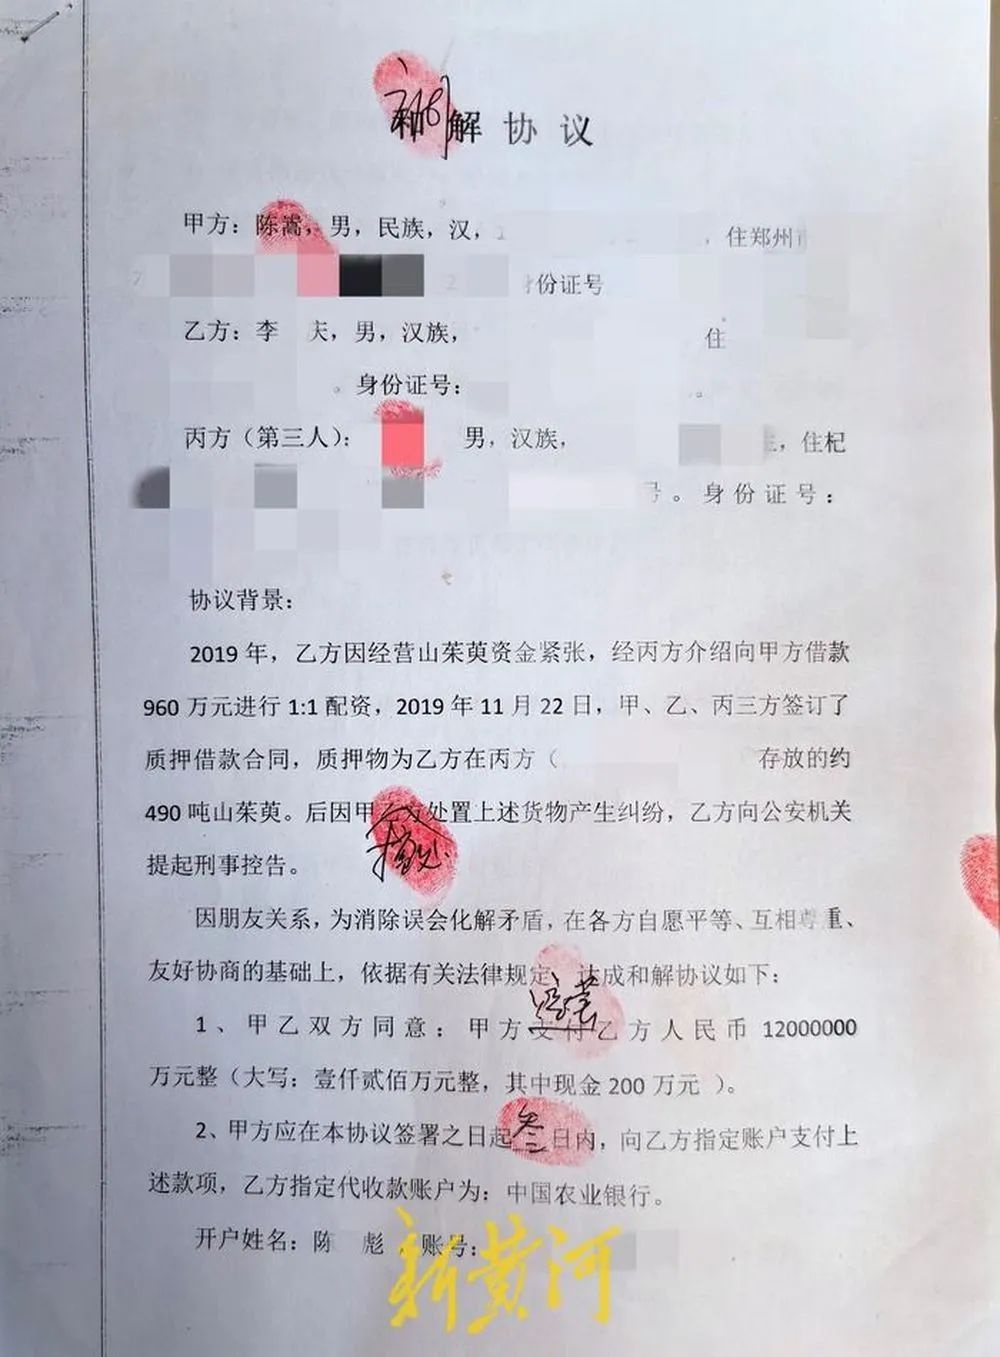 和解协议
甲方：陈嵩，男，民族，汉，，住郑州市
身份证号
乙方：李 庆，男，汉族， 住
。身份证号：。
丙方（第三人）： 男，汉族， 生，住杞
号。身份证号：
协议背景：
2019年，乙方因经营山茱萸资金紧张，经丙方介绍向甲方借款
960万元进行1:1配资，2019年11月22日，甲、乙、丙三方签订了
质押借款合同，质押物为乙方在丙方（ 存放的约
490吨山茱萸。后因甲乙方处置上述货物产生纠纷，乙方向公安机关
提起刑事控告。
因朋友关系，为消除误会化解矛盾，在各方自愿平等、互相尊重、
友好协商的基础上，依据有关法律规定，达成和解协议如下：
1、甲乙双方同意：甲方支付乙方人民币12000000
万元整（大写：壹仟贰佰万元整，其中现金200万元 ）。
2、甲方应在本协议签署之日起叁日内，向乙方指定账户支付上
述款项，乙方指定代收款账户为：中国农业银行。
开户姓名：陈 彪，账号：
新黄河